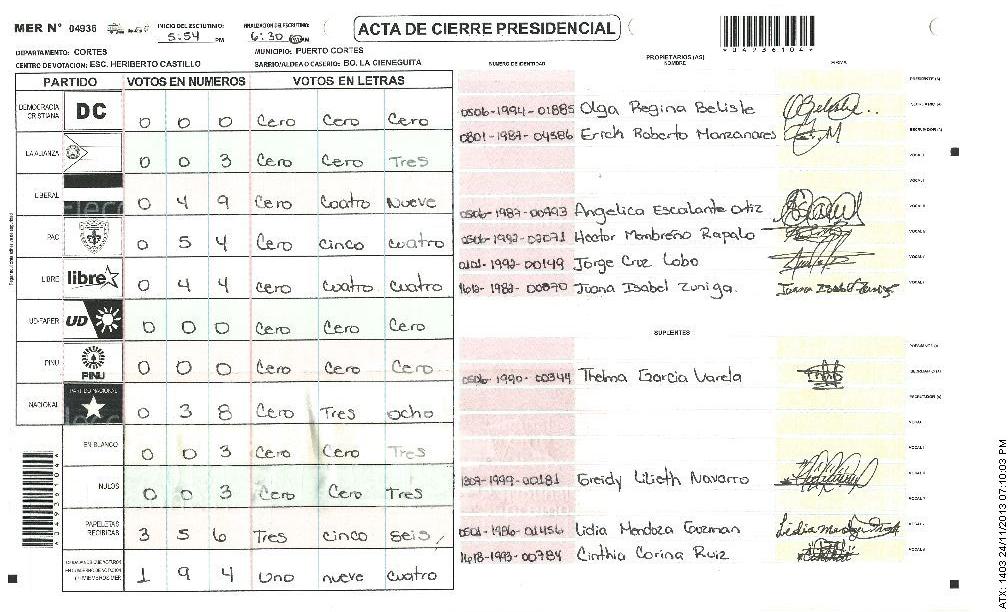 MER N° 04936
INICIO DEL ESCRUTINIO: 5:54 PM
FINALIZACION DEL ESCRUTINIO: 6:30 PM
ACTA DE CIERRE PRESIDENCIAL
DEPARTAMENTO: CORTES
MUNICIPIO: PUERTO CORTES
CENTRO DE VOTACION: ESC. HERIBERTO CASTILLO
BARRIO/ALDEA O CASERIO: BO. LA CIENEGUITA
PARTIDO VOTOS EN NUMEROS VOTOS EN LETRAS
DEMOCRACIA CRISTIANA DC 0 0 0 Cero Cero Cero
LA ALIANZA 0 0 3 Cero Cero Tres
LIBERAL 0 4 9 Cero Cuatro Nueve
PAC 0 5 4 Cero cinco cuatro
LIBRE libre 0 4 4 Cero cuatro cuatro
UD-FAPER UD 0 0 0 Cero Cero Cero
PINU PINU 0 0 0 Cero Cero Cero
NACIONAL PARTIDO NACIONAL 0 3 8 Cero Tres ocho
EN BLANCO 0 0 3 Cero Cero Tres
NULOS 0 0 3 Cero Cero Tres
PAPELETAS RECIBIDAS 3 5 6 Tres cinco seis
1 9 4 uno nueve cuatro
NUMERO DE IDENTIDAD PROPIETARIOS (AS) NOMBRE FIRMA
PRESIDENTE (A)
0506-1994-01885 Olga Regina Beliste SECRETARIO (A)
0801-1987-04586 Erick Roberto Manzanares ESCRUTADOR (A)
VOCAL I
Angelica Escalante Ortiz
Hector Membreño Rapalo
0101-1992-00149 Jorge Cruz Lobo
Juana Isabel Zuniga.
SUPLENTES
0506-1990-00344 Thelma Garcia Varela
Greidy Lilieth Navarro
0501-1986-01456 Lidia Mendoza Guzman
Cinthia Corina Ruiz
ATX: 1403 24/11/2013 07:10:03 PM